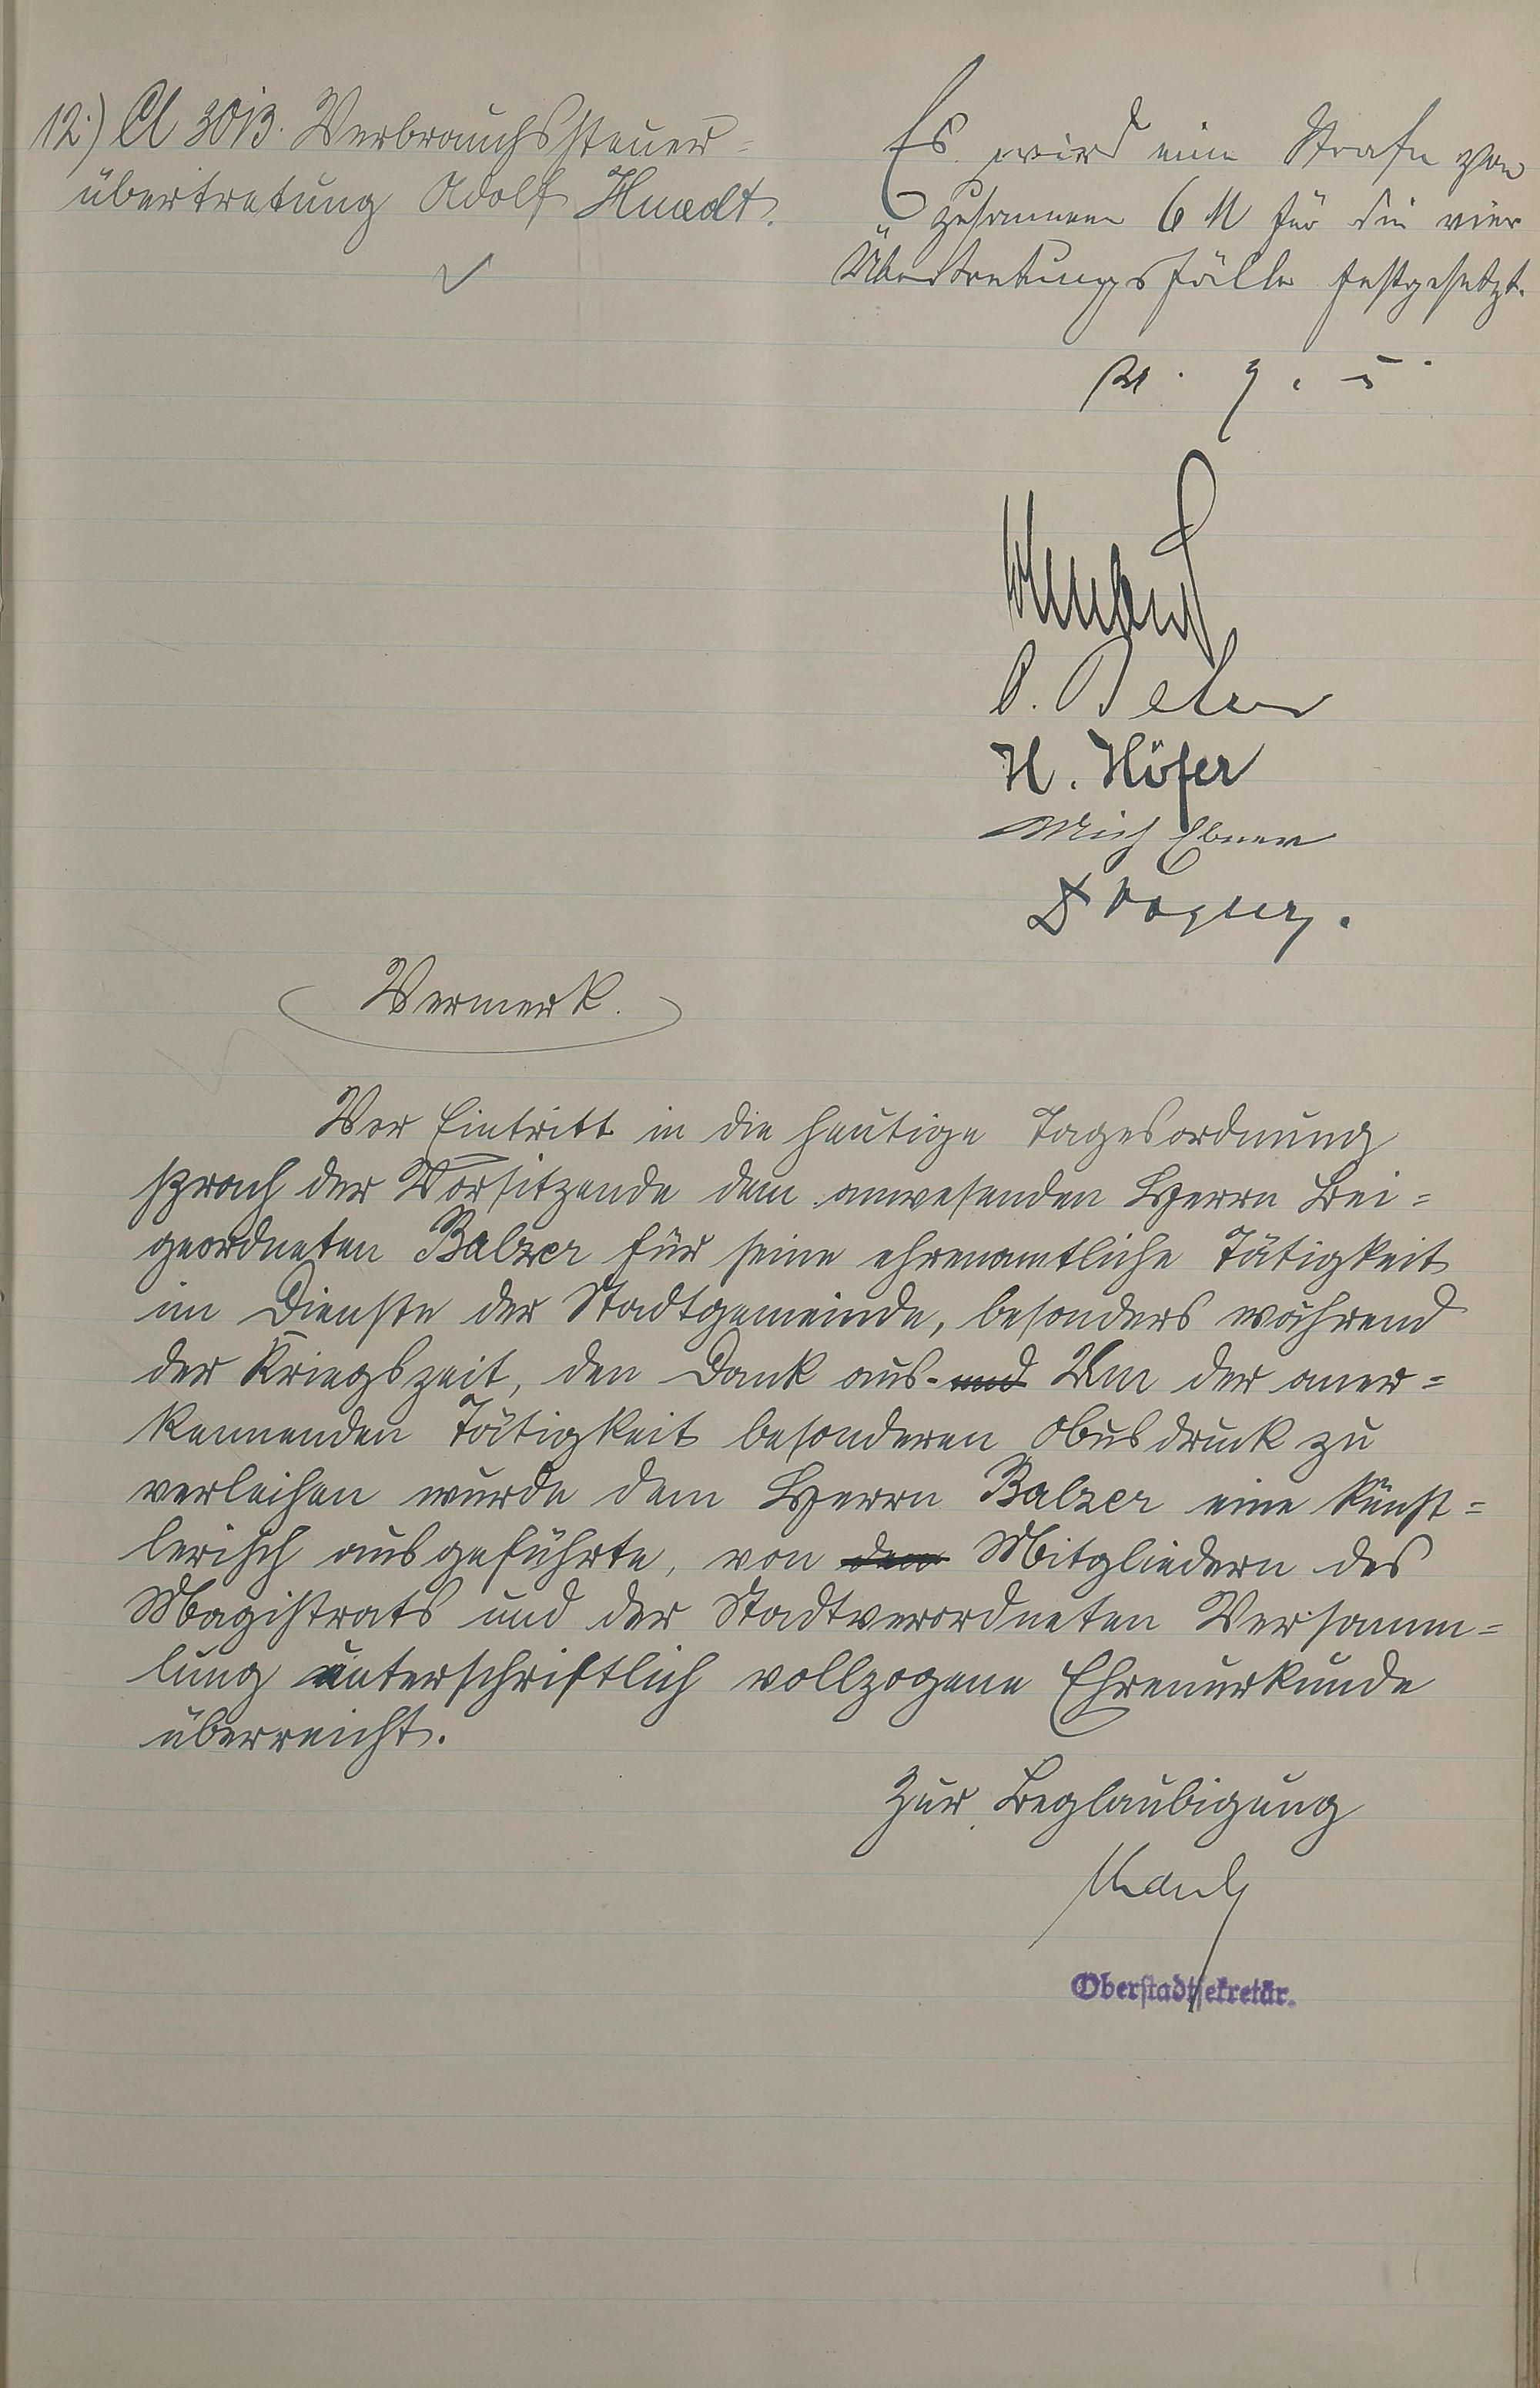 12.) A 3013. Verbrauchssteuer=
übertretung Adolf
Es wird eine Strafe von
zusammen 6 M für die vier
Übertretungsfälle festgesetzt.
H. Höfer
Mich Ebner
Vermerk.
Vor Eintritt in die heutige Tagesordnung
sprach der Vorsitzende dem anwesenden Herrn Bei=
geordneten Balzer für seine ehrenamtliche Tätigkeit
im Dienste der Stadtgemeinde, besonders während
der Kriegszeit, den Dank aus. und Um der aner=
kennenden Tätigkeit besonderen Ausdruck zu
verleihen wurde dem Herrn Balzer eine künst=
lerisch ausgeführte, von den Mitgliedern des
Magistrats und der Stadtverordneten Versamm=
lung unterschriftlich vollzogene Ehrenurkunde
überreicht.
Zur Beglaubigung
Oberstadtsekretär.